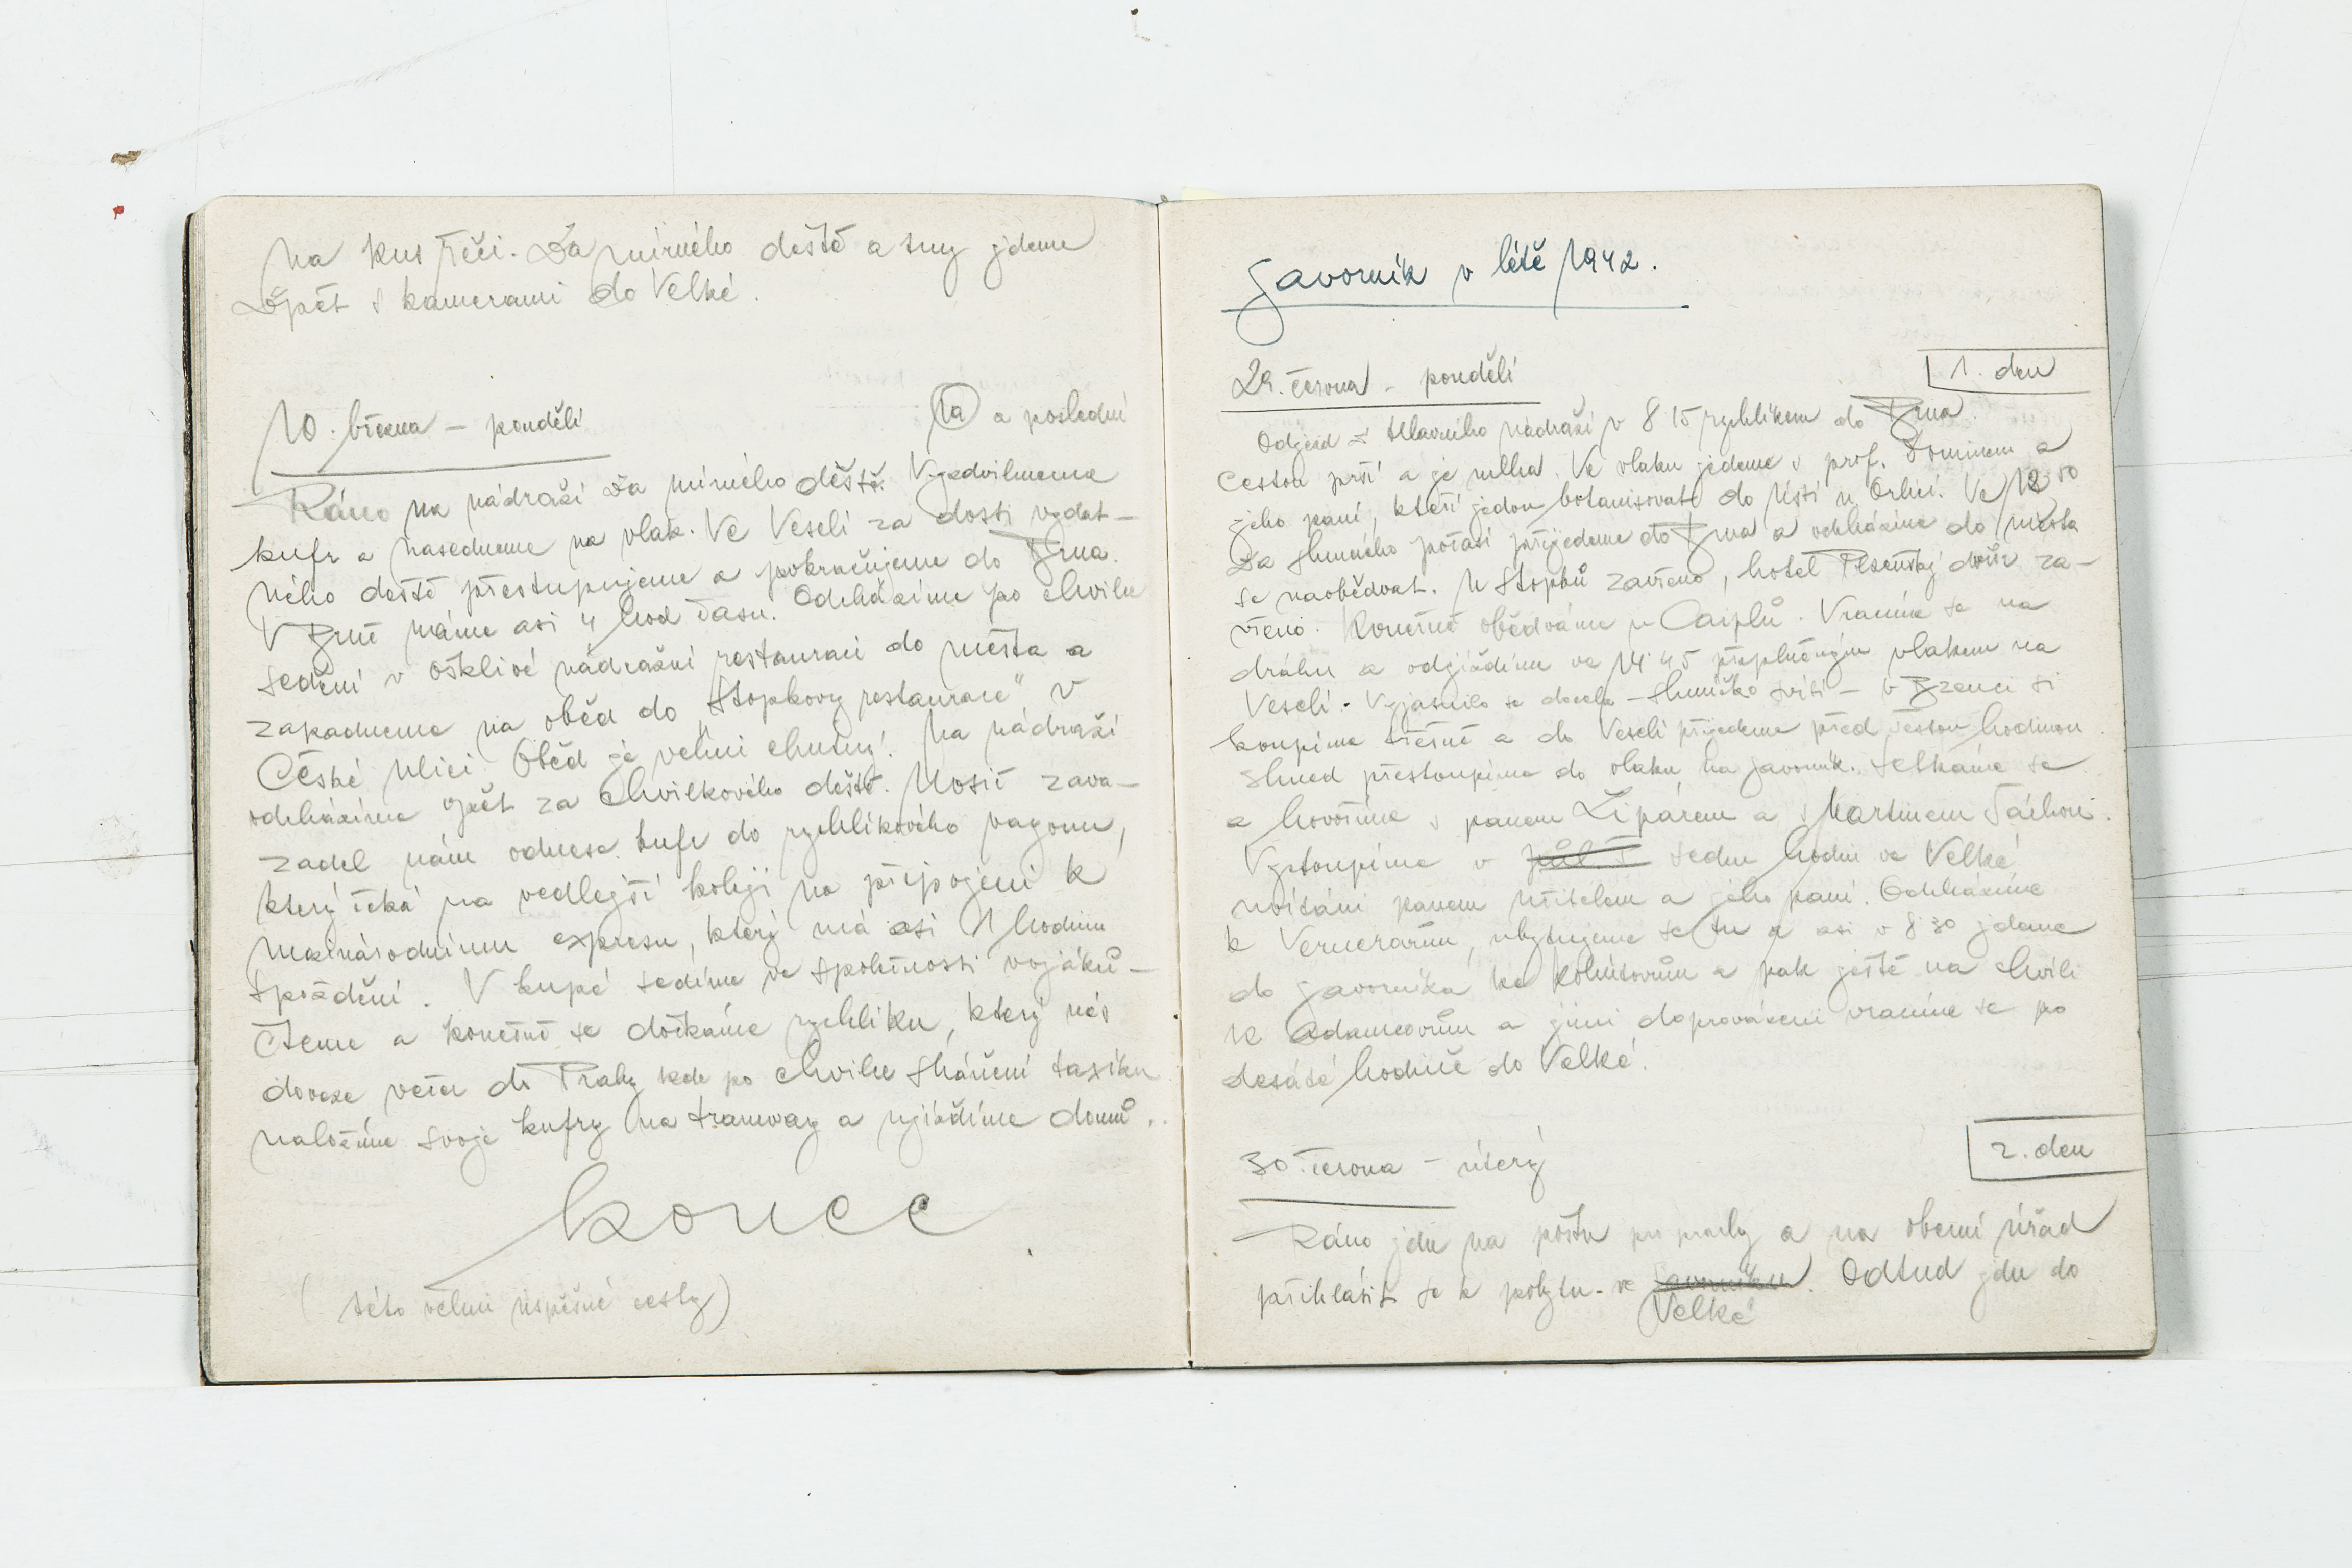 na kus řeči. Za mírného deště a tmy jdeme
zpět s kamerami do Velké.
10. března – pondělí
a poslední
Ráno na nádraží za mírného deště. Vyzdvihneme
kufr a nasedneme na vlak. Ve Veselí za dosti vydat-
ného deště přestupujeme a pokračujeme do Brna.
V Brně máme asi 4 hod času. Odcházíme po chvilce
sedění v ošklivé nádražní restauraci do města a
zapadneme na oběd do „Stopkovy restaurace" v
České ulici. Oběd je velmi chutný! Na nádraží
odcházíme zpět za chvilkového deště. Nosič zava-
zadel nám odnese kufr do rychlíkového vagonu,
který čeká na vedlejší koleji na připojení k
mezinárodnímu expresu, který má asi 1 hodinu
zpoždění. V kupé sedíme ve společnosti vojáků –
čteme a konečně se dočkáme rychlíku, který nás
doveze večer do Prahy kde po chvilce shánění taxíku
naložíme svoje kufry na tramway a ujíždíme domů..
konec
(této velmi úspěšné cesty)
Javorník v létě 1942.
29. června – pondělí
1. den
Odjezd z Hlavního nádraží v 8 15 rychlíkem do Brna.
Cestou prší a je mlha. Ve vlaku jedeme s prof. Dominem a
jeho paní, kteří jedou botanisovat do Ústí n Orlicí. Ve 12 50
za slunného počasí přijedeme do Brna a odcházíme do města
se naobědvat. U Stopků zavřeno, hotel Plzeňský dvůr za-
vřeno. Konečně obědváme u Caiplů. Vracíme se na
dráhu a odjíždíme ve 14 45 přeplněným vlakem na
Veselí. Vyjasnilo se docela – sluníčko svítí – v Bzenci si
koupíme třešně a do Veselí přijedeme před šestou hodinou.
Ihned přestoupíme do vlaku na Javorník. Setkáme se
a hovoříme s panem Lipárem a s Martinem Šáchou.
Vystoupíme v půl 8 sedm hodin ve Velké
uvítáni panem učitelem a jeho paní. Odcházíme
k Vernerarům, ubytujeme se tu a asi v 8 30 jdeme
do Javorníka ke Kohútovům a pak ještě na chvíli
k Adamcovům a jimi doprovázeni vracíme se po
desáté hodině do Velké.
30. června – úterý
2. den
Ráno jdu na poštu pro prachy a na obecní úřad
přihlásit se k pobytu – ve Javorníku. Odtud jdu do
Velké